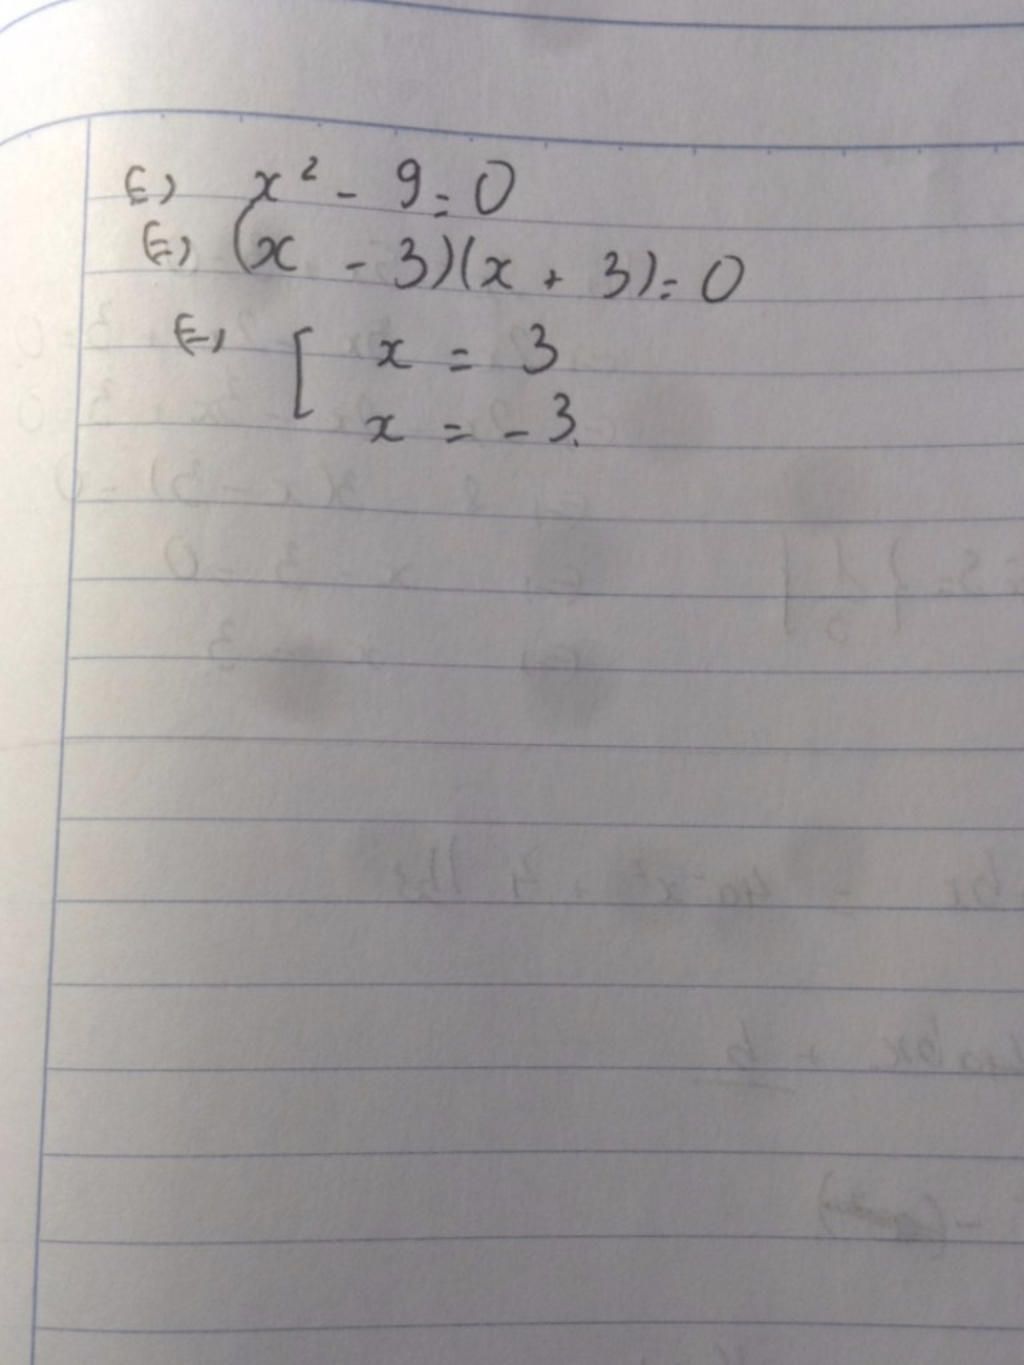 ⇔ x² - 9 = 0
⇔ (x - 3)(x + 3) = 0
⇔ [ x = 3
x = -3.